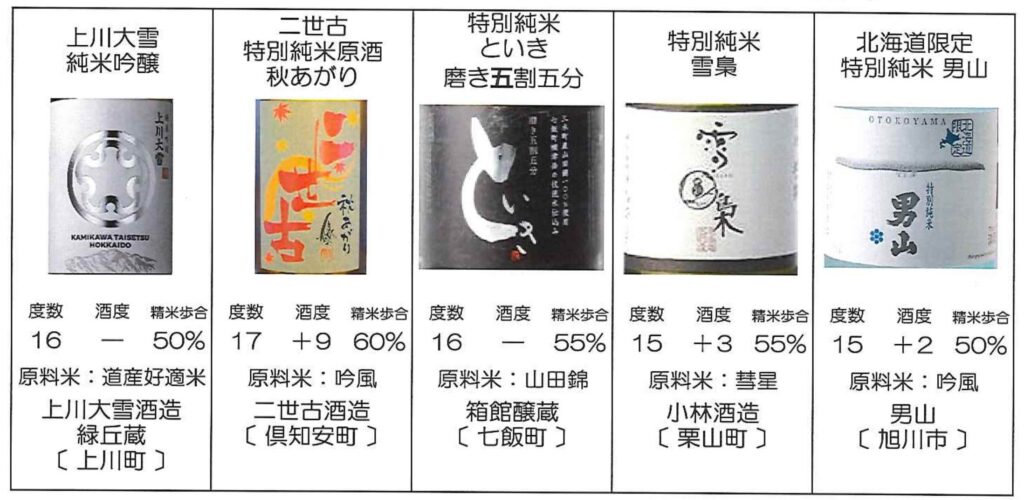 上川大雪
純米吟醸
上川大雪
KAMIKAWA TAISETSU
HOKKAIDO
度数 酒度 精米歩合
16 — 50%
原料米：道産好適米
上川大雪酒造
緑丘蔵
〔 上川町 〕
二世古
特別純米原酒
秋あがり
二世古
秋あがり
度数 酒度 精米歩合
17 +9 60%
原料米：吟風
二世古酒造
〔 倶知安町 〕
特別純米
といき
磨き五割五分
といき
磨き五割五分
度数 酒度 精米歩合
16 — 55%
原料米：山田錦
箱館醸蔵
〔 七飯町 〕
特別純米
雪梟
雪梟
度数 酒度 精米歩合
15 +3 55%
原料米：彗星
小林酒造
〔 栗山町 〕
北海道限定
特別純米 男山
OTOKOYAMA
北海道
限定
特別純米
男山
度数 酒度 精米歩合
15 +2 50%
原料米：吟風
男山
〔 旭川市 〕